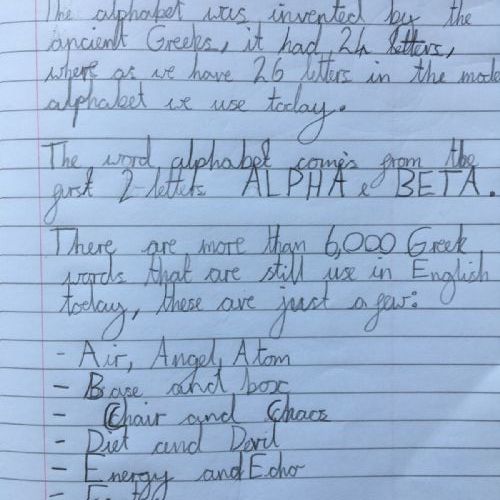 The alphabet was invented by the
ancient Greeks, it had 24 letters,
where as we have 26 letters in the mode
alphabet we use today.
The word alphabet comes from the
first 2-letters ALPHA & BETA.
There are more than 6,000 Greek
words that are still use in English
today, these are just a few:
- Air, Angel, Atom
- Base and box
- Chair and Chaos
- Diet and Devil
- Energy and Echo